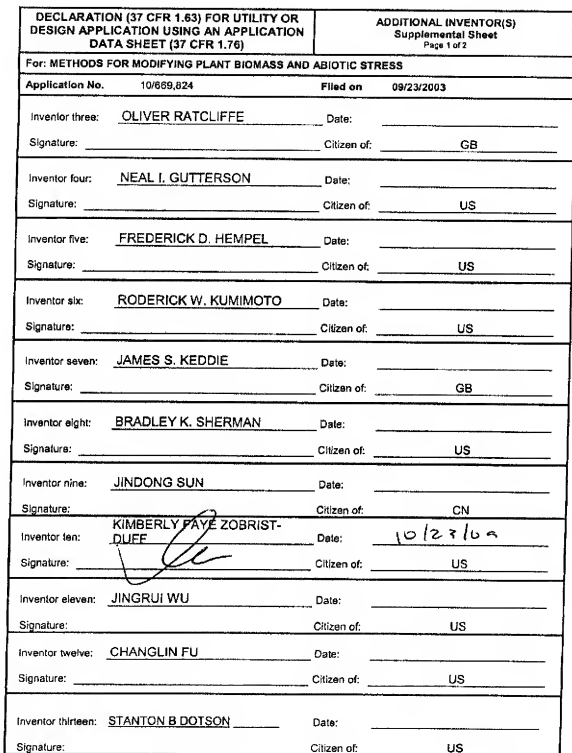 DECLARATION (37 CFR 1.63) FOR UTILITY OR
DESIGN APPLICATION USING AN APPLICATION
DATA SHEET (37 CFR 1.76)
ADDITIONAL INVENTOR(S)
Supplemental Sheet
Page 1 of 2
For: METHODS FOR MODIFYING PLANT BIOMASS AND ABIOTIC STRESS
Application No. 10/669,824 Filed on 09/23/2003
Inventor three: OLIVER RATCLIFFE Date:
Signature: Citizen of: GB
Inventor four: NEAL I. GUTTERSON Date:
Signature: Citizen of: US
Inventor five: FREDERICK D. HEMPEL Date:
Signature: Citizen of: US
Inventor six: RODERICK W. KUMIMOTO Date:
Signature: Citizen of: US
Inventor seven: JAMES S. KEDDIE Date:
Signature: Citizen of: GB
Inventor eight: BRADLEY K. SHERMAN Date:
Signature: Citizen of: US
Inventor nine: JINDONG SUN Date:
Signature: Citizen of: CN
KIMBERLY FAYE ZOBRIST-
Inventor ten: DUFF Date: 10/23/09
Signature: Citizen of: US
Inventor eleven: JINGRUI WU Date:
Signature: Citizen of: US
Inventor twelve: CHANGLIN FU Date:
Signature: Citizen of: US
Inventor thirteen: STANTON B DOTSON Date:
Signature: Citizen of: US